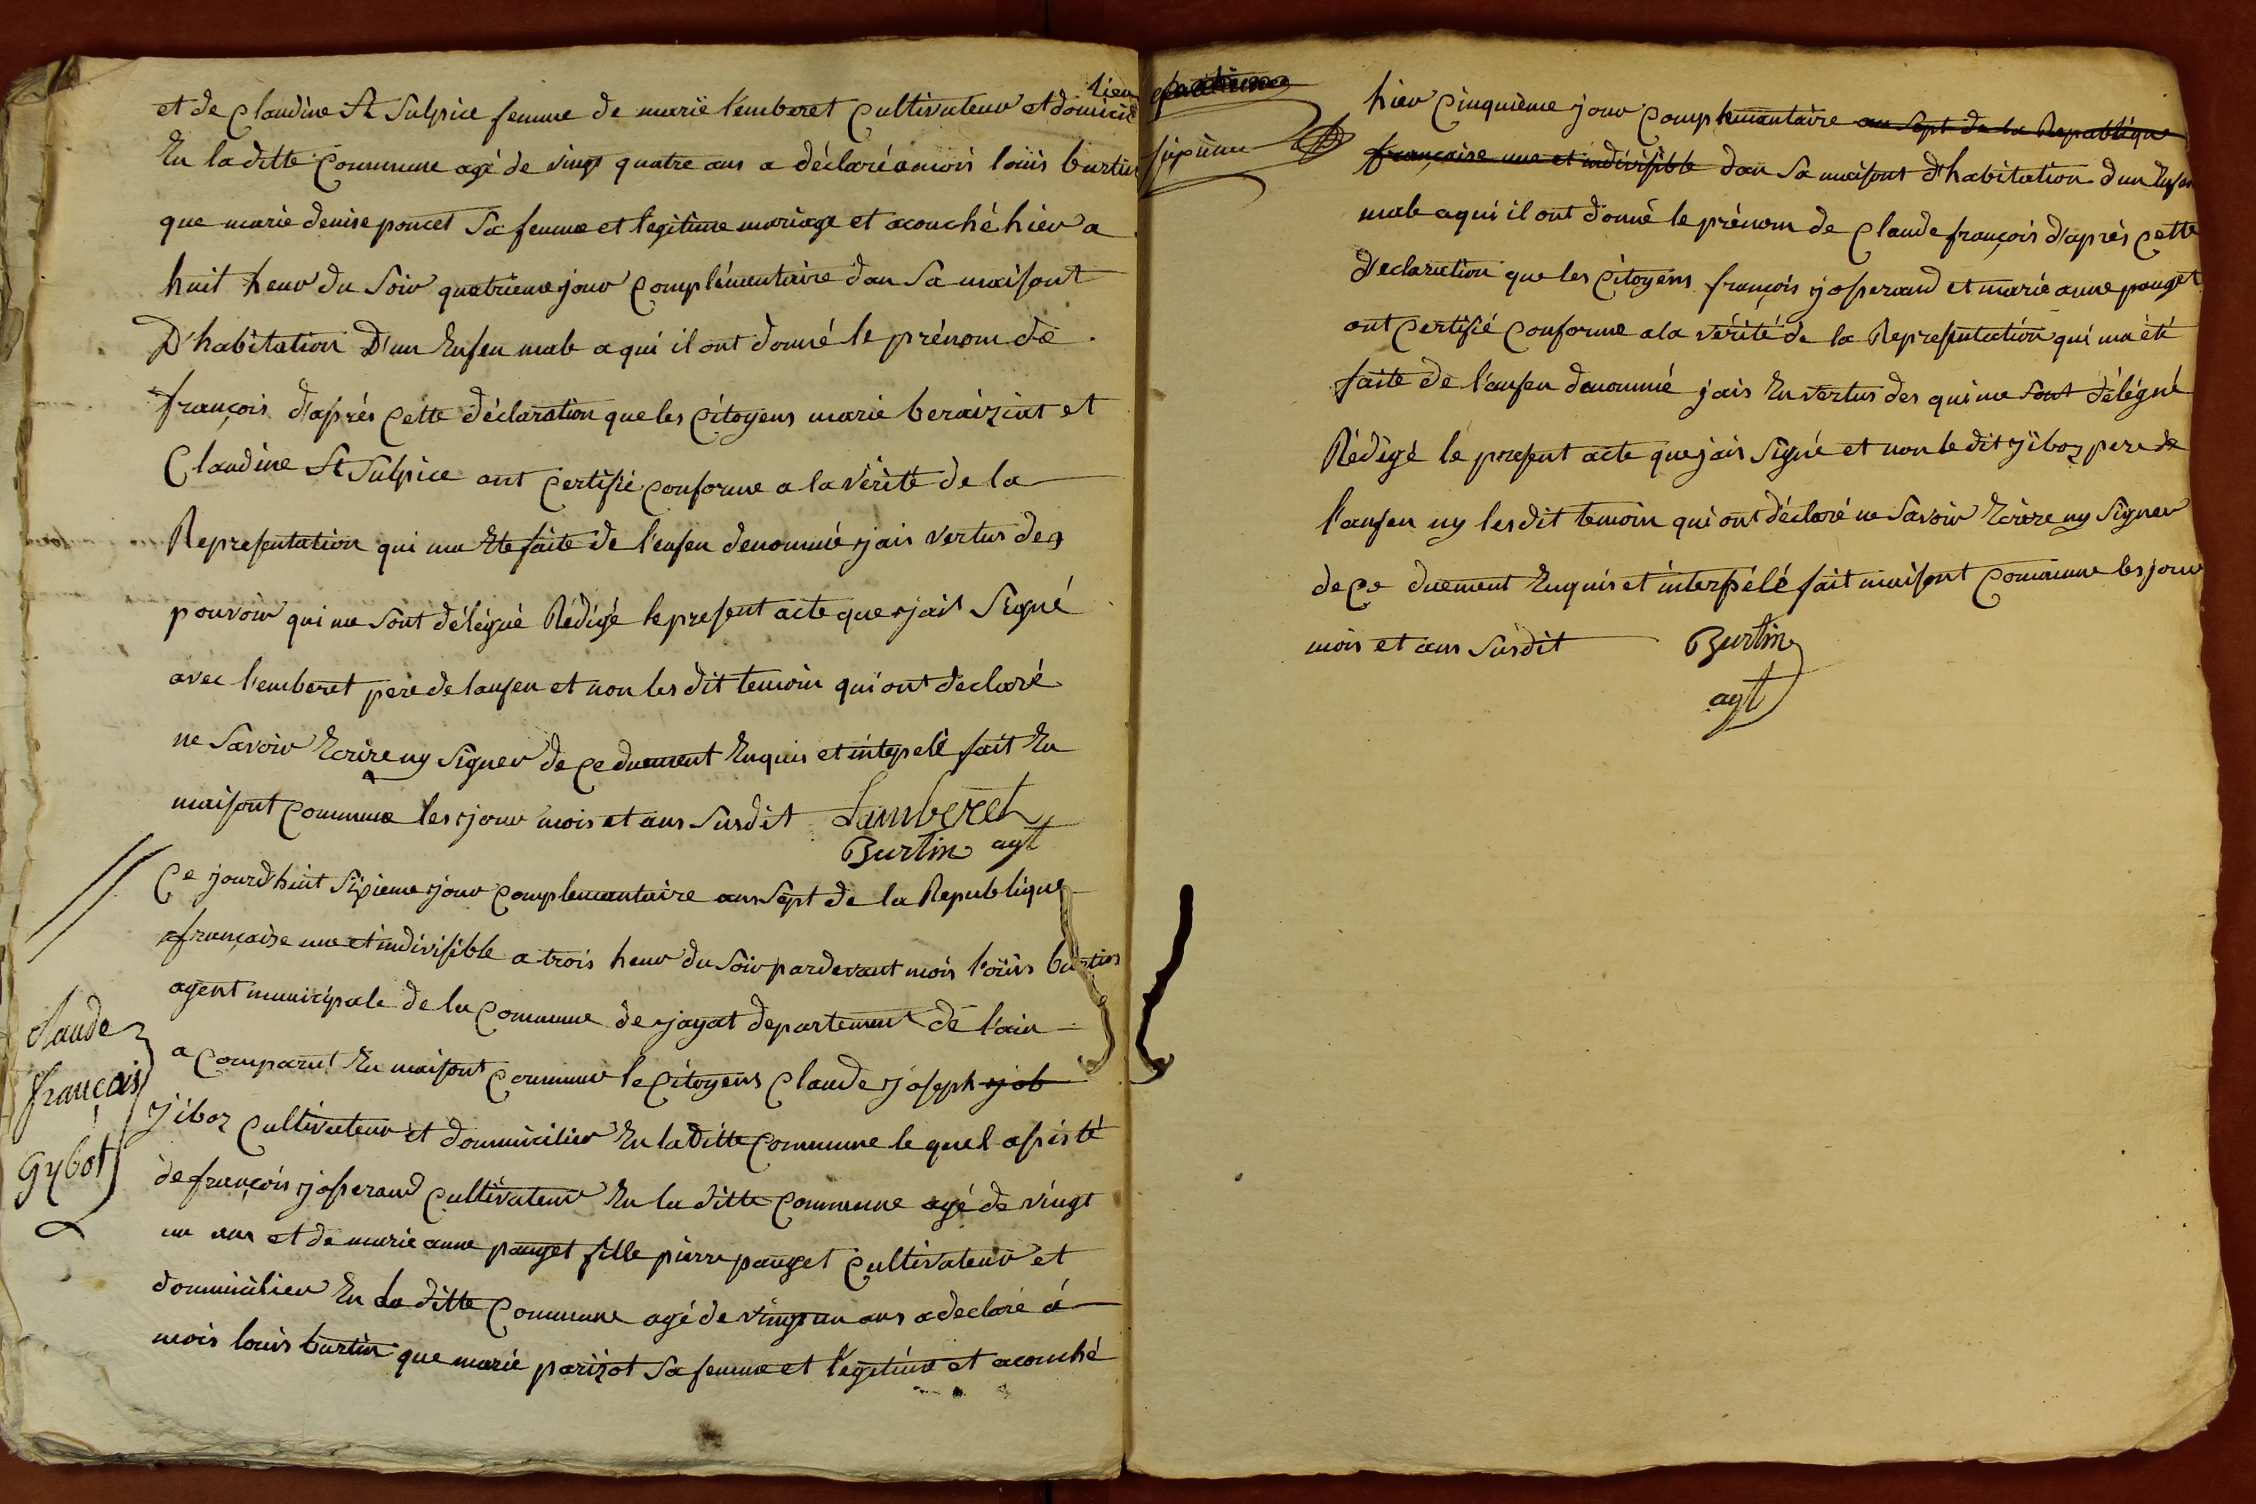 et de Claudine St Sulpice femme de marië l'emberet Cultivateur et domicilier
En la ditte Commune agé de vingt quatre ans a déclaré a mois louis burtin
que marie denise poncet Sa femme et légitime mariage et acouché hier a
huit heur du Soir quatrieme jour Complémentaire dan Sa maisont
D'habitation D'un Enfen male a qui il ont donné le prénom de
françois d'aprés Cette déclaration que les Citoyens marie beraizint et
Claudine St Sulpice ont Certifié Conforme a la vérité de la
Representation qui ma Ete faite de l'enfen denommé jais vertus des
pouvoir qui me sont délégué Rédigé le present acte que jais Signé
avec l'emberet pere de lanfen et non les dit temoin qui ont declaré
ne Savoir Ecrire ny Signer de Ce duement Enquis et intepelé fait En
maisont Commune les jour mois et ans Susdit Lamberet
Burtin agt
Ce jourd'huit Sixieme jour Complementaire ans Sept de la Republique
française une et indivisible a trois heur du Soir pardevant mois louis burtin
agent municipale de la Commune de jayat departement de l'ain
a Comparut En maisont Commune le Citoyens Claude joseph job
jiboz Cultivateur et dommicilier En la Ditte Commune le quel assisté
de françois josserand Cultivateur En la ditte Commune agé de vingt
un ans et de marie anne pauget fille pierre pauget Cultivateur et
dommicilier En la ditte Commune agé de vingt un ans a declaré á
mois louis burtin que marie parizot Sa femme et légitime et acouché
Claude
françois
Gybot
sixieme
hier Cinquième jour Complemantaire an Sept de la Republique
française une et indivisible dan Sa maisont d'habitation d'un Enfen
male a qui il ont donné le prénom de Claude françois d'aprés Cette
declaration que les Citoyens françois josserand et marie anne pauget
ont Certifié Conforme a la vérité de la Representation qui ma été
faite de l'anfen denommé jais En vertus des qui me sont délégué
Rédigé le present acte que jais Signé et non le dit jiboz pere de
l'anfen ny les dit temoin qui ont déclaré ne Savoir Ecrire ny Signer
de Ce duement Enquis et interpélé fait maisont Commune les jour
mois et ans Susdit Burtin
agt